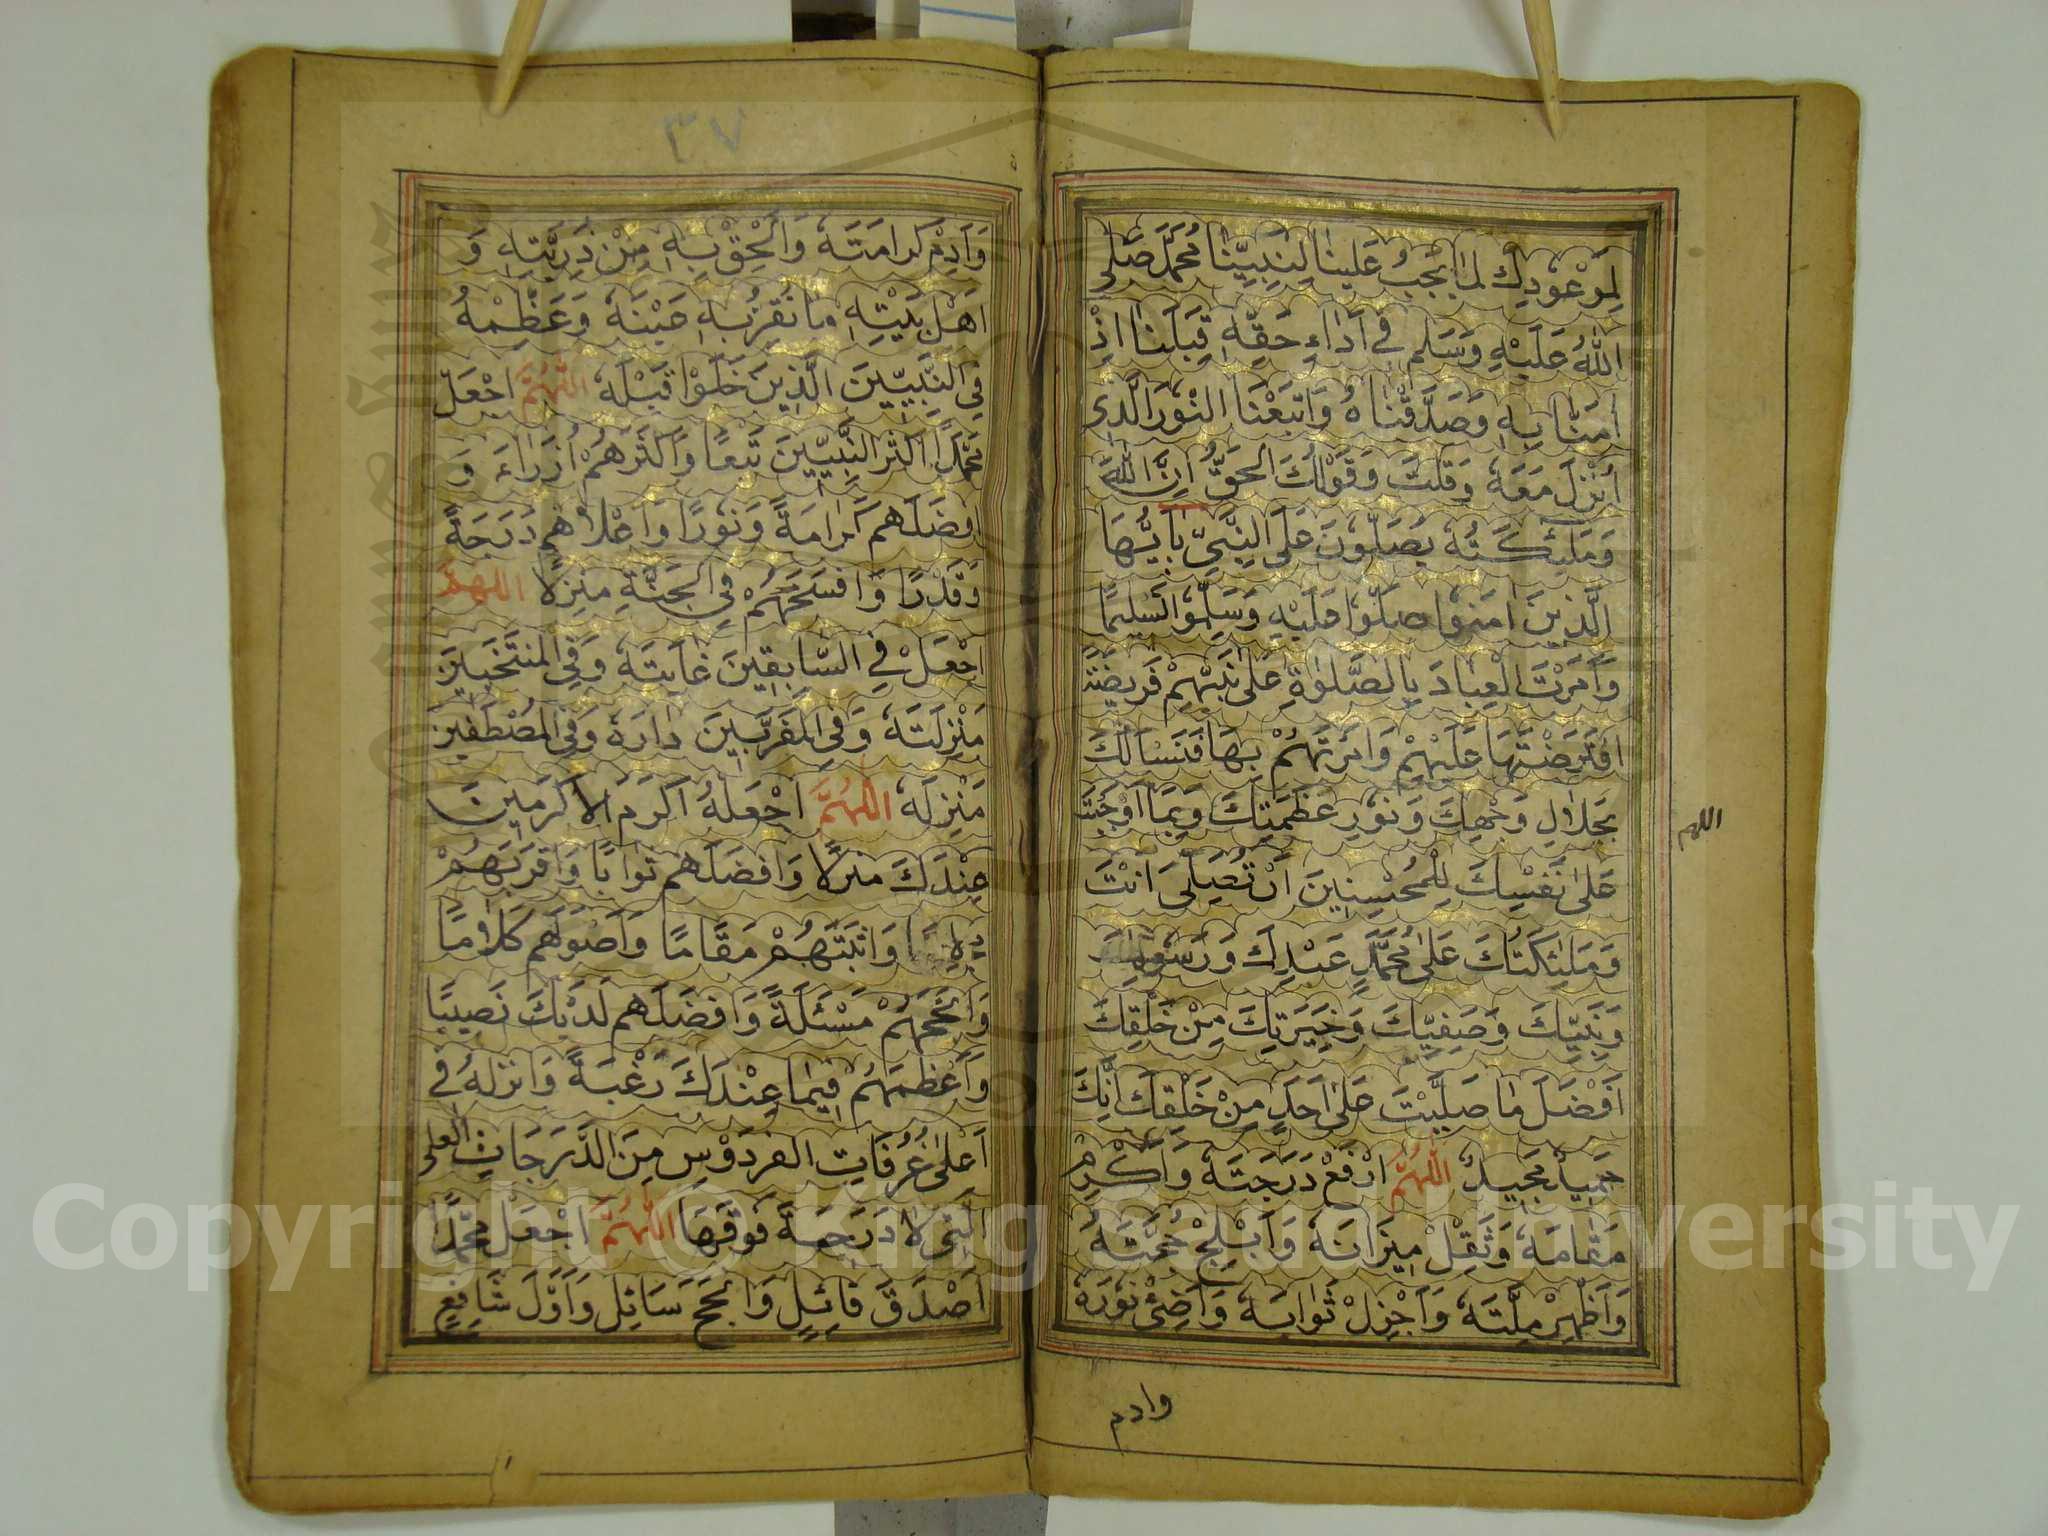 لِمَوْعُودِكَ لِمَا يَجِبُ عَلَيْنَا لِنَبِيِّنَا مُحَمَّدٍ صَلَّى
اللّٰهُ عَلَيْهِ وَسَلَّمَ فِي أَدَاءِ حَقِّهِ قِبَلَنَا اِذْ
اٰمَنَّا بِهِ وَصَدَّقْنَاهُ وَاتَّبَعْنَا النُّورَ الَّذِي
اُنْزِلَ مَعَهُ وَقُلْتَ وَقَوْلُكَ الْحَقُّ اِنَّ اللّٰهَ
وَمَلٰئِكَتَهُ يُصَلُّونَ عَلَى النَّبِيِّ يَا اَيُّهَا
الَّذِينَ اٰمَنُوا صَلُّوا عَلَيْهِ وَسَلِّمُوا تَسْلِيمًا
وَاَمَرْتَ الْعِبَادَ بِالصَّلٰوةِ عَلَى نَبِيِّهِمْ فَرِيضَةً
افْتَرَضْتَهَا عَلَيْهِمْ وَاَمَرْتَهُمْ بِهَا فَنَسْاَلُكَ
بِجَلَالِ وَجْهِكَ وَنُورِ عَظَمَتِكَ وَبِمَا اَوْجَبْتَ
عَلَى نَفْسِكَ لِلْمُحْسِنِينَ اَنْ تُصَلِّيَ اَنْتَ
وَمَلٰئِكَتُكَ عَلَى مُحَمَّدٍ عَبْدِكَ وَرَسُولِكَ
وَنَبِيِّكَ وَصَفِيِّكَ وَخِيَرَتِكَ مِنْ خَلْقِكَ
اَفْضَلَ مَا صَلَّيْتَ عَلَى اَحَدٍ مِنْ خَلْقِكَ اِنَّكَ
حَمِيدٌ مَجِيدٌ اَللّٰهُمَّ ارْفَعْ دَرَجَتَهُ وَاَكْرِمْ
مَقَامَهُ وَثَقِّلْ مِيزَانَهُ وَاَبْلِجْ حُجَّتَهُ
وَاَظْهِرْ مِلَّتَهُ وَاَجْزِلْ ثَوَابَهُ وَاَضِئْ نُورَهُ
اللهم
وادم
٣٧
وَاَدِمْ كَرَامَتَهُ وَاَلْحِقْ بِهِ مِنْ ذُرِّيَّتِهِ وَ
اَهْلِ بَيْتِهِ مَا تَقِرُّ بِهِ عَيْنُهُ وَعَظِّمْهُ
فِي النَّبِيِّينَ الَّذِينَ خَلَوْا قَبْلَهُ اَللّٰهُمَّ اجْعَلْ
مُحَمَّدًا اَكْثَرَ النَّبِيِّينَ تَبَعًا وَاَكْثَرَهُمْ اُزَرَاءَ وَ
اَفْضَلَهُمْ كَرَامَةً وَنُورًا وَاَعْلَاهُمْ دَرَجَةً
وَقَدْرًا وَاَفْسَحَهُمْ فِي الْجَنَّةِ مَنْزِلًا اَللّٰهُمَّ
اجْعَلْ فِي السَّابِقِينَ غَايَتَهُ وَفِي الْمُنْتَخَبِينَ
مَنْزِلَتَهُ وَفِي الْمُقَرَّبِينَ دَارَهُ وَفِي الْمُصْطَفَيْنَ
مَنْزِلَهُ اَللّٰهُمَّ اجْعَلْهُ اَكْرَمَ الْاَكْرَمِينَ
عِنْدَكَ مَنْزِلًا وَاَفْضَلَهُمْ ثَوَابًا وَاَقْرَبَهُمْ
وَاَثْبَتَهُمْ مَقَامًا وَاَصْوَبَهُمْ كَلَامًا
وَاَنْجَحَهُمْ مَسْئَلَةً وَاَفْضَلَهُمْ لَدَيْكَ نَصِيبًا
وَاَعْظَمَهُمْ فِيمَا عِنْدَكَ رَغْبَةً وَاَنْزِلْهُ فِي
اَعْلَى غُرُفَاتِ الْفِرْدَوْسِ مِنَ الدَّرَجَاتِ الْعُلَى
الَّتِي لَا دَرَجَةَ فَوْقَهَا اَللّٰهُمَّ اجْعَلْ مُحَمَّدًا
اَصْدَقَ قَائِلٍ وَاَنْجَحَ سَائِلٍ وَاَوَّلَ شَافِعٍ
Copyright © King Saud University